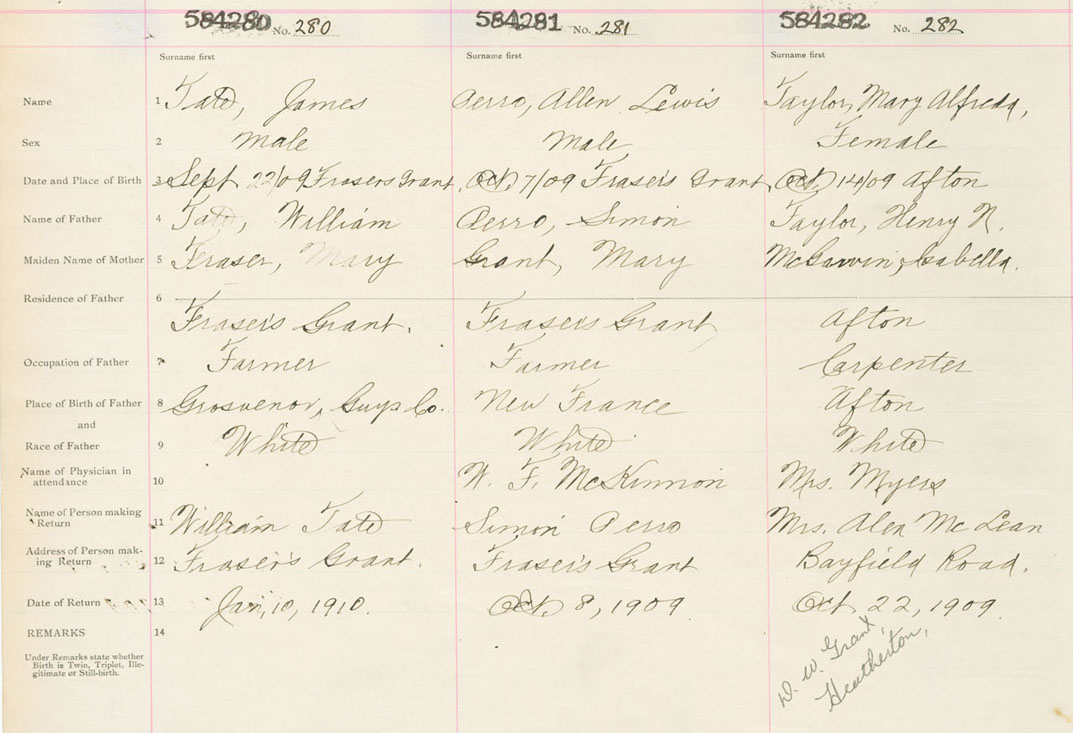 584280 No. 280 584281 No. 281 584282 No. 282
Surname first Surname first Surname first
Name 1 Tate, James Perro, Allen Lewis Taylor, Mary Alfreda,
Sex 2 Male Male Female
Date and Place of Birth 3 Sept 22/09 Frasers Grant, Oct. 7/09 Fraser's Grant, Oct. 14/09 Afton
Name of Father 4 Tate, William Perro, Simon Taylor, Henry N.
Maiden Name of Mother 5 Fraser, Mary Grant, Mary McGarvin, Isabella.
Residence of Father 6
Fraser's Grant. Fraser's Grant Afton
Occupation of Father 7 Farmer Farmer Carpenter
Place of Birth of Father 8 Grosvenor, Guys Co. New France Afton
and
Race of Father 9 White White White
Name of Physician in
attendance 10 W. F. McKinnon Mrs. Myers
Name of Person making
Return 11 William Tate Simon Perro Mrs. Alex McLean
Address of Person mak-
ing Return 12 Fraser's Grant. Fraser's Grant Bayfield Road.
Date of Return 13 Jan, 10, 1910. Oct. 8, 1909 Oct 22, 1909
REMARKS 14
Under Remarks state whether
Birth is Twin, Triplet, Ille-
gitimate or Still-birth.
D. W. Grant,
Heatherton,